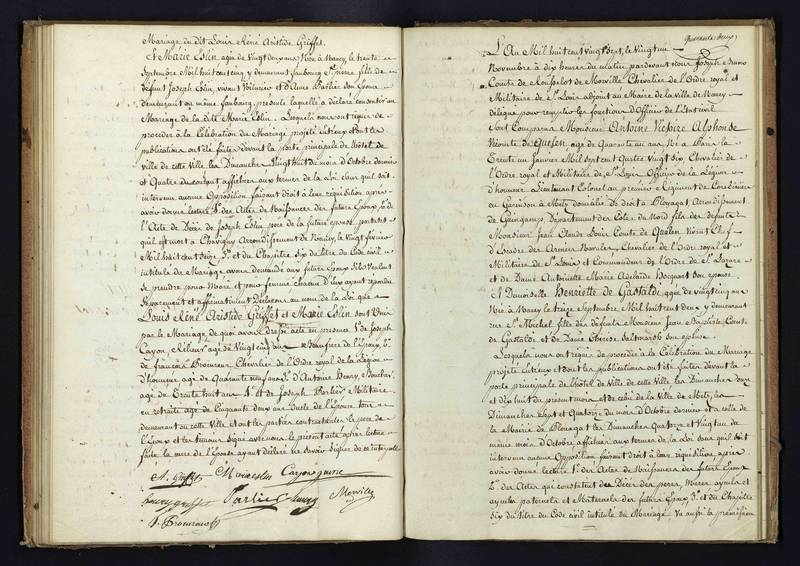 Mariage du dit Louis René Aristide Griffet.
Et Marie Colin, agée de Vingt deux ans Née à Nancy, le trente
Septembre Mil huit cent cinq y demeurant faubourg St. pierre fille de
defunt Joseph Colin, vivant Voiturier et d'Anne Barlier son Epouse
demeurant au même faubourg, presente laquelle a déclaré consentir au
Mariage de la dite Marie Colin. Lesquels nous ont requis de
procéder à la Célébration du Mariage projeté entr'eux et dont les
publications ont été faites devant la porte principale de l'hôtel de
ville de cette Ville les Dimanches Vingt huit du mois d'Octobre dernier
et Quatre du courant affichées aux termes de la Loi sans qu'il soit
intervenu aucune Opposition faisant droit à leur réquisition après
avoir donné lecture 1°. des Actes de Naissances des futurs Epoux 2°. de
l'Acte de Décès de Joseph Colin, père de la future épouse, portant
qu'il est mort à Chavigny Arrondissement de Nancy, le Vingt février
Mil huit cent 3°. et du Chapitre Six du titre du Code civil
intitulé du Mariage avons demandé aux futurs Epoux s'ils veulent
se prendre pour Mari et pour femme chacun d'eux ayant répondu
séparément et affirmativement Déclarons au nom de la loi que
Louis René Aristide Griffet et Marie Colin sont Unis
par le Mariage, de quoi avons dressé acte en présence 1°. de Joseph
Cayon, Relieur agé de Vingt cinq ans Beaufrère de l'Epoux, 2°.
de François Procureur Chevalier de l'Ordre royal de la Légion
d'honneur agé de Quarante neuf ans 3°. d'Antoine Henry, Boucher
agé de Trente huit ans 4°. et de Joseph Barlier Militaire
en retraite agé de Cinquante deux ans Oncle de l'Epouse tous
demeurant en cette Ville et ont les parties contractantes la mère de
l'Epouse et les témoins signé avec nous le présent acte après lecture
faite la mère de l'Epouse ayant déclaré ne savoir signer de ce interpellée
A. Griffet Marie Colin Cayon
Barlier henry Morville
f. Procureur
Quarante deux
L'An Mil huit cent vingt Sept, le Vingt un
Novembre à dix heures du matin pardevant nous Joseph
Comte de Rousselot de Morville Chevalier de l'Ordre royal et
Militaire de St. Louis adjoint au Maire de la ville de Nancy
délégué pour remplir les fonctions d'Officier de l'Etat civil
Sont Comparus Monsieur Antoine Victoire Alphonse
Vicomte de Quelen agé de Quarante un ans Né à Paris le
Trente un Janvier Mil sept cent Quatre Vingt Six Chevalier de
l'Ordre royal et Militaire de St. Louis Officier de la Légion
d'honneur Lieutenant Colonel au premier Régiment de Cuirassiers
en Garnison à Metz domicilié de droit à Plouagat Arrondissement
de Guingamp, Département des Côtes du Nord fils des défunts
Monsieur Jean Claude Louis Comte de Quelen Vivant Chef
d'Escadre des Armées Navales Chevalier de l'Ordre royal et
Militaire de St. Louis et Commandeur de l'Ordre de St. Lazare
et de Dame Antoinette Marie Adélaïde Hocquart son épouse,
Et Demoiselle Henriette de Gastaldi, agée de vingt cinq ans
Née à Nancy le treize Septembre Mil huit cent deux y demeurant
rue St. Michel fille des défunts Monsieur Jean Baptiste Comte
de Gastaldi et de Dame Thérèse Saltmarsh son épouse.
Lesquels nous ont requis de procéder à la Célébration du Mariage
projeté entr'eux et dont les publications ont été faites devant la
porte principale de l'hôtel de Ville de cette Ville les Dimanches Onze
et dix huit du présent mois et de celui de la Ville de Metz, les
Dimanches Sept et Quatorze du mois d'Octobre dernier et à celle de
la Mairie de Plouagat les Dimanches Quatorze et Vingt un du
même mois d'Octobre affichées aux termes de la Loi sans qu'il soit
intervenu aucune Opposition faisant droit à leur réquisition après
avoir donné lecture 1°. des Actes de Naissances des futurs Epoux
2°. des Actes qui constatent les Décès des pères, mères ayeuls et
ayeules paternels et Maternels des futurs Epoux 3°. et du Chapitre
six du titre du Code civil intitulé du Mariage Vu aussi la permission